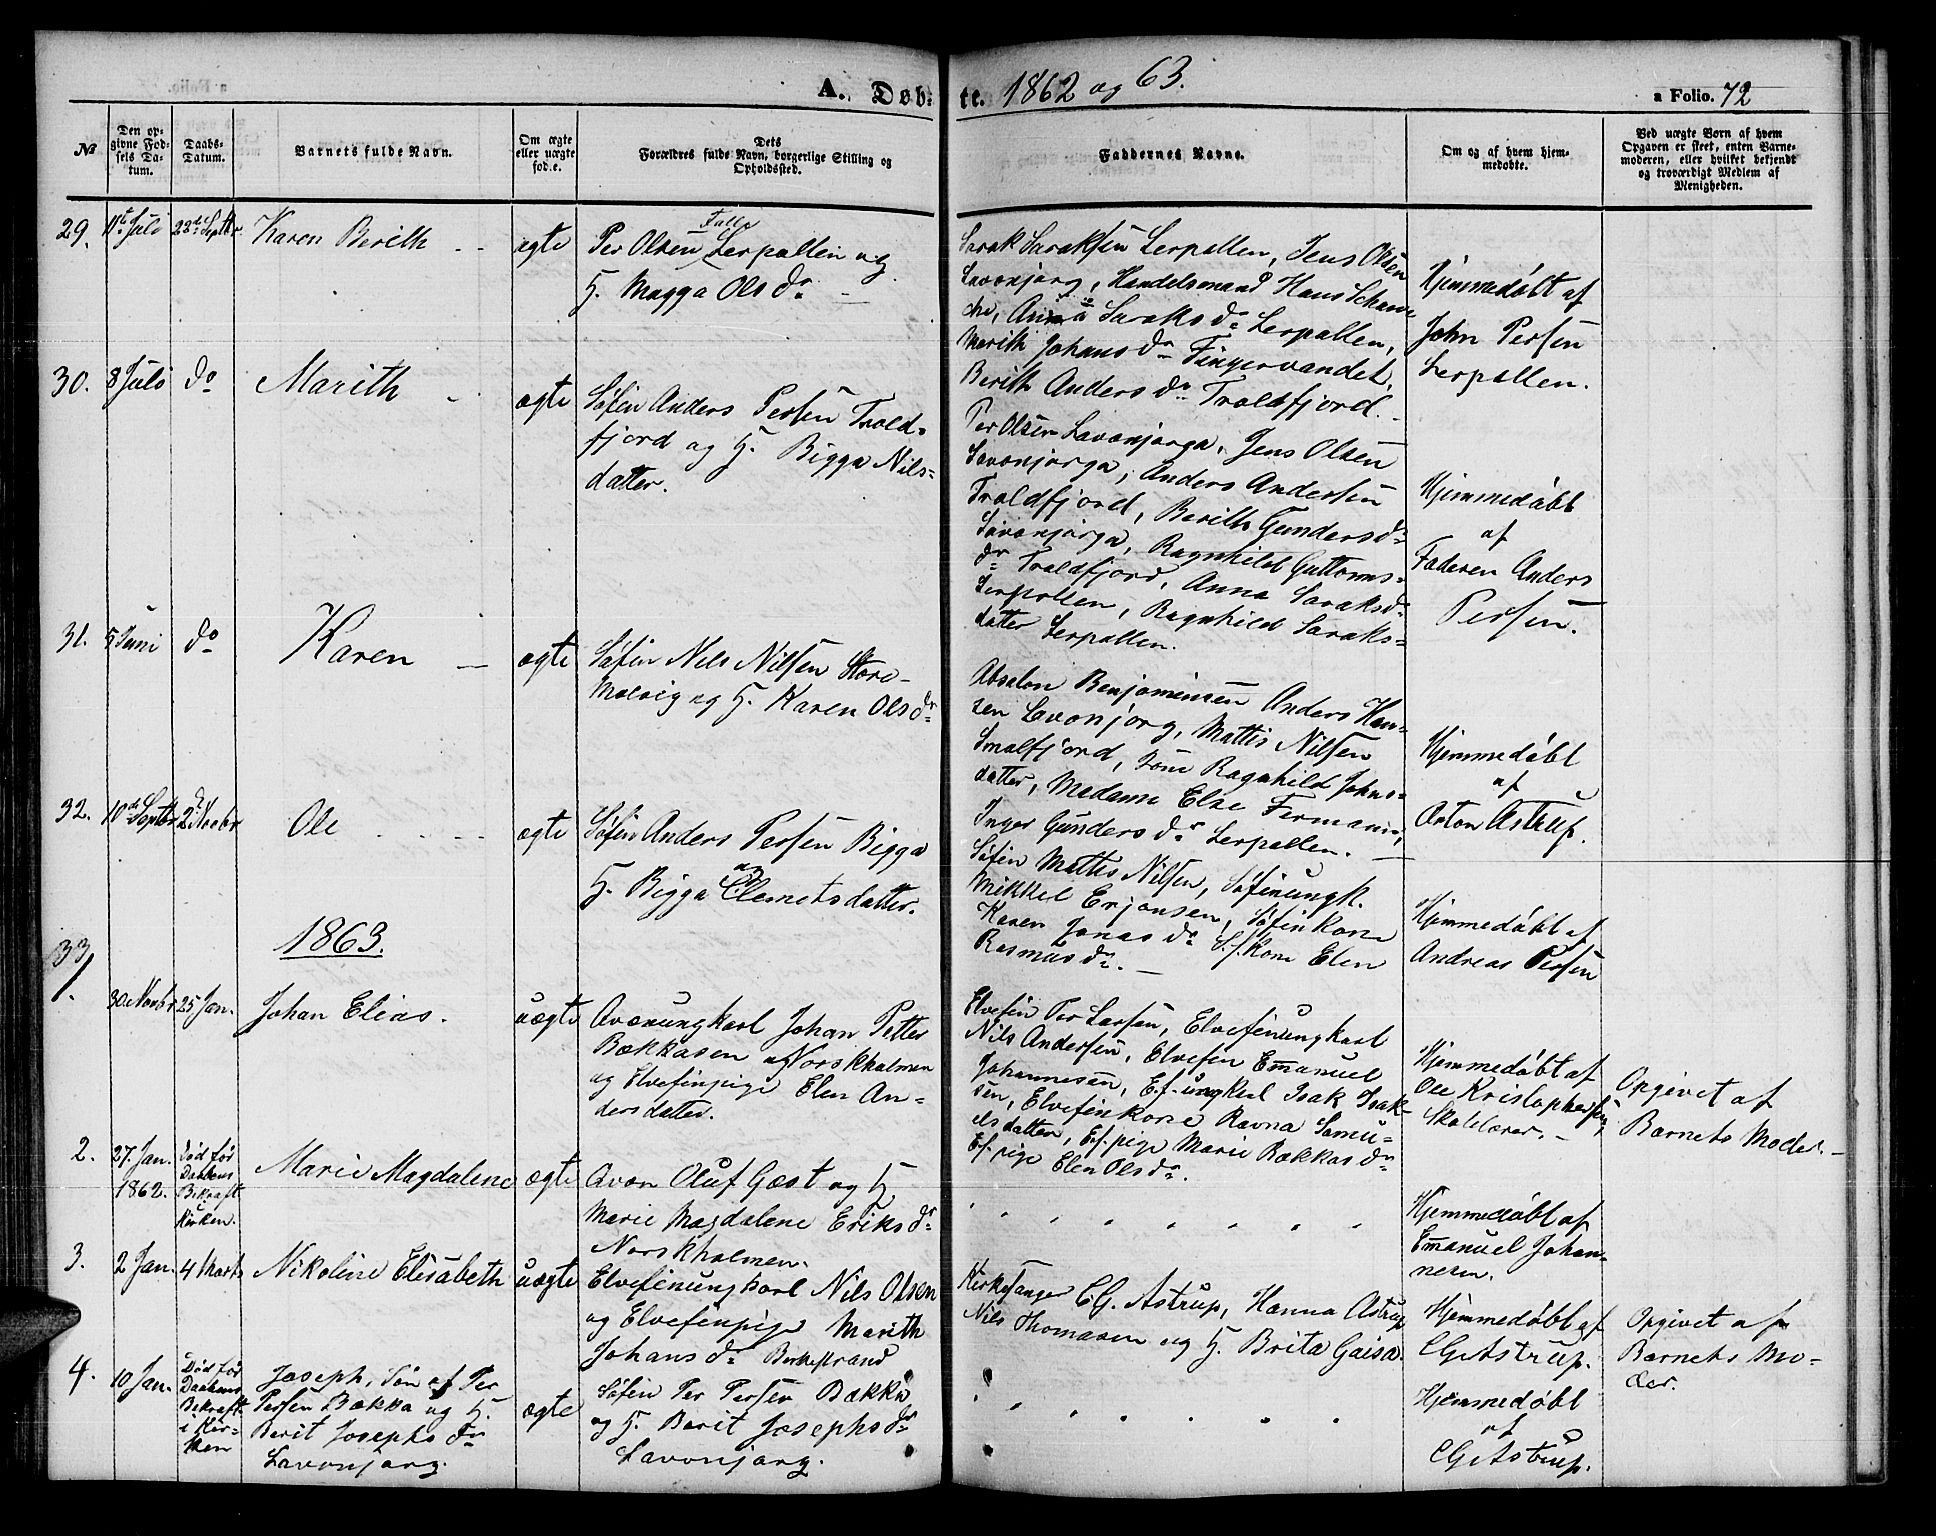 A. Døb-
te. 1862 og 63.
a Folio. 72
No
Den op-
givne Fød-
sels Da-
tum.
Daabs-
Datum.
Barnets fulde Navn.
Om ægte
eller uægte
fød.e.
Dets
Forældres fulde Navn, borgerlige Stilling og
Opholdssted.
Faddernes Navne.
Om og af hvem hjem-
medøbte.
Ved uægte Børn af hvem
Opgaven er skeet, enten Barne-
moderen, eller hvilket bekjendt
og troværdigt Medlem af
Menigheden.
29.
11te Juli
28de Septbr.
Karen Berith
ægte
Per Olsen Lerpollen og
H. Magga Olsdr
Sarak Saraksen Lerpollen, Jens Olsen
Lavonjarg, Handelsmand Hans Schan-
che, Anna Saraksdr Lerpollen,
Marith Johansdr Fingervandet,
Berith Andersdr Troldfjord.
Hjemmedøbt af
John Persen
Lerpollen.
30.
8 Juli
do
Marith
ægte
Søfin Anders Persen Trold-
fjord og H. Bigga Nils-
datter.
Per Olsen Lavonjarga, Jens Olsen
Lavonjarga, Anders Andersen
Troldfjord, Berith Gundersdr
Lavonjarga, Ragnhild Guttorms-
dr Troldfjord, Anna Saraksdr
Lerpollen, Ragnhild Saraks-
datter Lerpollen.
Hjemmedøbt
af
Faderen Anders
Persen.
31.
5 Juni
do
Karen
ægte
Søfin Nils Nilsen Store-
Molvig og H. Karen Olsdr
Absalon Benjaminsen Anders Han-
sen Lavonjarg, Mattis Nilsen
Smalfjord, Ragnhild Johns-
datter, Madame Else Fermann,
Inger Gundersdr Lerpollen.
Hjemmedøbt
af
Anton Astrup.
32.
10de Septbr
2 Novbr
Ole
ægte
Søfin Anders Persen Bigga
og
H. Bigga Clemetsdatter.
Søfin Mattis Nilsen, Søfinungk.
Mikkel Erjansen, Søfinkone
Karen Jonasdr S.f.kone Elen
Rasmusdr.
Hjemmedøbt af
Andreas Persen
1863.
33
1.
30 Novbr
25 Jan.
Johan Elias.
uægte
Qvænungkarl Johan Petter
Bækkasen af Norskholmen
og Elvefinpige Elen An-
dersdatter.
Elvefin Per Larsen, Elvefinungkarl
Nils Andersen, Elvefin Emanuel
Johannesen, E.f. ungkarl Isak Isak-
sen, Elvefinkone Ravna Samu-
elsdatter, E.f. pige Marie Bækkasdr
E.f. pige Elen Olsdr.
Hjemmedøbt af
Ole Kristophersen,
Skolelærer.
Opgivet af
Barnets Moder.
2.
27. Jan.
1862.
Død før
Daabens
Bekræft.
Kirken.
Marie Magdalene
ægte
Qvæn Oluf Gæst og H
Marie Magdalene Eriksdr
Norskholmen.
Hjemmedøbt af
Emanuel Johan-
nesen.
3.
2 Jan.
4 Marts
Nikoline Elisabeth
uægte
Elvefinungkarl Nils Olsen
og Elvefinpige Marith
Johansdr Birkestrand
Kirkesanger C.G. Astrup, Hanna Astrup
Nils Thomasen og H. Brita Gaisa.
Hjemmedøbt af
C.G. Astrup.
Opgivet af
Barnets Mo-
der.
4.
10 Jan.
Død før
Daabens
Bekræft.
i Kir-
ken
Joseph, Søn af Per
Persen Bækka og H.
Berit Josephsdr
Lavonjarg.
ægte
Søfin Per Persen Bækka
og H. Berit Josephsdr
Lavonjarg.
Hjemmedøbt
af
C.G. Astrup.